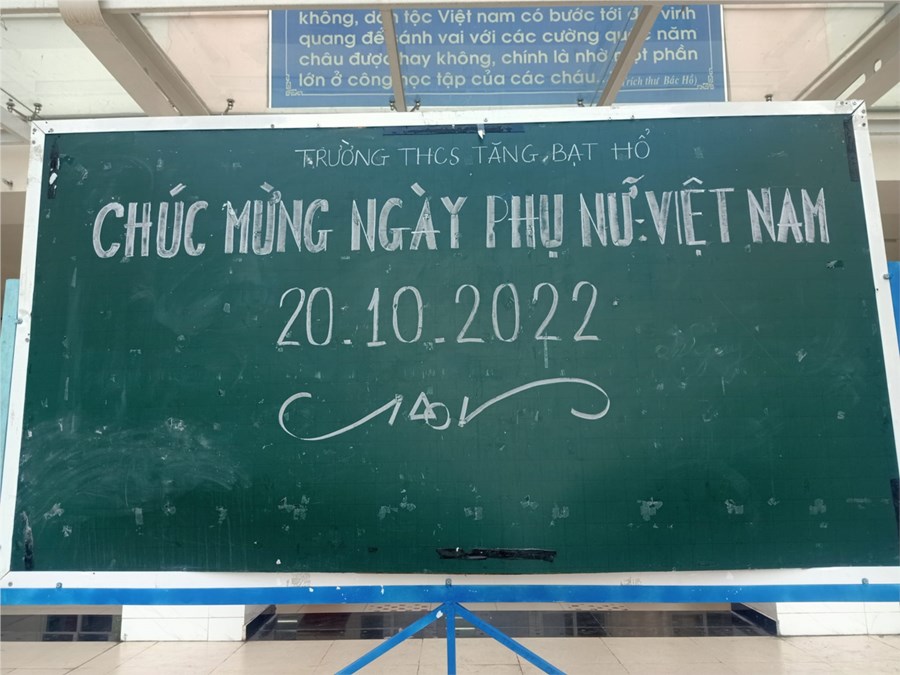 không, dân tộc Việt nam có bước tới đài vinh
quang để sánh vai với các cường quốc năm
châu được hay không, chính là nhờ một phần
lớn ở công học tập của các cháu... (Trích thư Bác Hồ)
TRƯỜNG THCS TĂNG BẠT HỔ
CHÚC MỪNG NGÀY PHỤ NỮ VIỆT NAM
20.10.2022